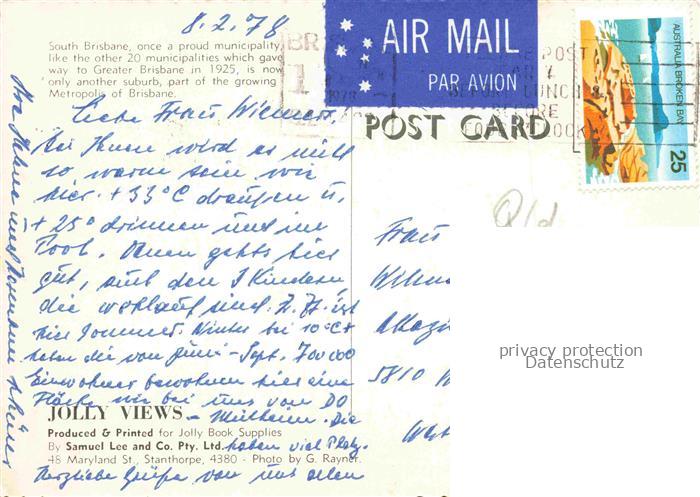 8.2.78
South Brisbane, once a proud municipality,
like the other 20 municipalities which gave
way to Greater Brisbane in 1925, is now
only another suburb, part of the growing
Metropolis of Brisbane.
AIR MAIL
PAR AVION
AUSTRALIA BROKEN BAY
25
POST CARD
Qld
Liebe Frau
Bei Ihnen wird es nicht
so warm sein wie
hier. + 33°C draußen u.
+ 25° drinnen und im
Pool. Ihnen gehts hier
gut, mit den Kindern,
die wohlauf sind. Z. Zt. ist
hier Sommer. Winter bei 10°C +
haben die von Juni - Sept. 700 000
Einwohner bewohnen hier eine
Fläche wie bei uns von DO
- Mülheim. Die
haben viel Platz.
Herzliche Grüße von uns allen
JOLLY VIEWS
Produced & Printed for Jolly Book Supplies
By Samuel Lee and Co. Pty. Ltd.
48 Maryland St., Stanthorpe, 4380 - Photo by G. Rayner.
Frau
5810
privacy protection
Datenschutz